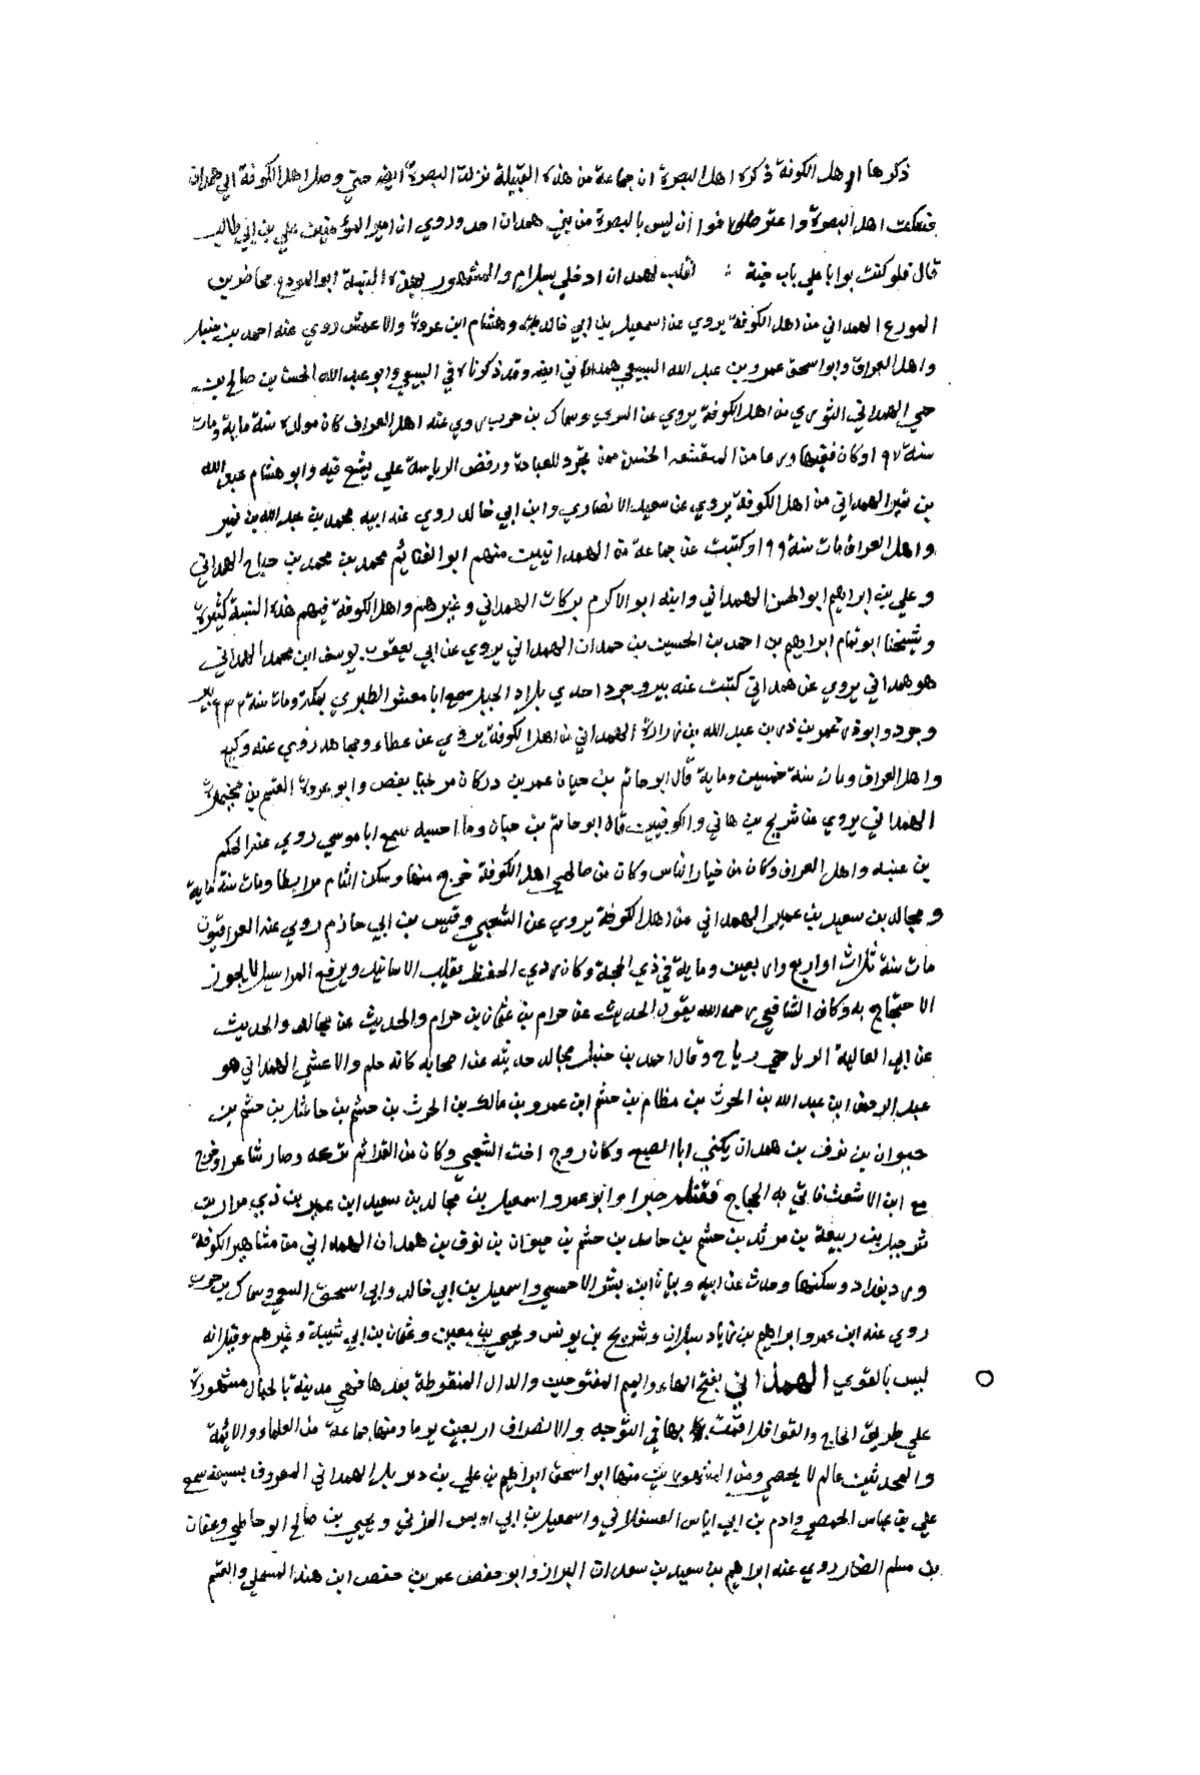 ذكرها اهل الكوفة ذكره اهل البصرة ان جماعة من هذه القبيلة نزلت البصرة ايضا حتي وصل اهل الكوفة الي همدان
فسكت اهل البصرة واعترفوا ان ليس بالبصرة من بني همدان احد وروي ان امير المؤمنين علي بن ابي طالب
قال فلو كنت بوابا علي باب جنة : لقلت لهمدان ادخلي بسلام والمشهور بهذه النسبة ابو المورع محاضر بن
المورع الهمداني من اهل الكوفة يروي عن اسمعيل بن ابي خالد وهشام ابن عروة والاعمش روي عنه احمد بن حنبل
واهل العراق وابو اسحق عمرو بن عبد الله السبيعي همداني ايضا وقد ذكرناه في السبيعي وابو عبد الله الحسن بن صالح بن
حي الهمداني الثوري من اهل الكوفة يروي عن السدي وسماك بن حرب روي عنه اهل العراق كان مولده سنة ماية ومات
سنة ١٦٧ وكان فقيها ورعا من المتقشفة الخشن ممن تجرد للعبادة ورفض الرياسة علي تشيع فيه وابو هشام عبد الله
بن نمير الهمداني من اهل الكوفة يروي عن سعيد الانصاري وابن ابي خالد روي عنه ابنه محمد بن عبد الله بن نمير
واهل العراق مات سنة ١٩٩ وكتبت عن جماعة من الهمدانيين منهم ابو الغنائم محمد بن محمد بن الهمداني
وعلي بن ابراهيم ابو الحسن الهمداني وابنه ابو الاكرم بركات الهمداني وغيرهم واهل الكوفة فيهم هذه النسبة كثيرة
وشيخنا ابو تمام ابراهيم بن احمد بن الحسين بن حمدان الهمداني يروي عن ابي يعقوب يوسف ابن محمد الهمداني
هو همداني يروي عن همداني كتبت عنه ببروجرد احدي بلاد الجبل سمع ابا معشر الطبري بمكة ومات سنة
وابو ذر عمر بن ذر بن عبد الله بن زرارة الهمداني من اهل الكوفة يروي عن عطاء ومجاهد روي عنه وكيع
واهل العراق ومات سنة خمسين وماية قال ابو حاتم بن حيان عمر بن ذر كان مرجئا يقص وابو عروة القسم بن مخيمرة
الهمداني يروي عن شريح بن هاني والكوفيين قال ابو حاتم بن حبان وما احسبه سمع ابا موسي روي عنه الحكم
بن عتيبة واهل العراق وكان من خيار الناس وكان من صالحي اهل الكوفة خرج منها وسكن الشام مرابطا ومات سنة ماية
ومجالد بن سعيد بن عمير الهمداني من اهل الكوفة يروي عن الشعبي وقيس بن ابي حازم روي عنه العراقيون
مات سنة ثلاث او اربع واربعين وماية في ذي الحجة وكان ردي الحفظ يقلب الاسانيد ويرفع المراسيل لا يجوز
الاحتجاج به وكان الشافعي رحمه الله يقول الحديث عن حرام بن عثمان حرام والحديث عن مجالد والحديث
عن ابي العالية الرياحي رياح وقال احمد بن حنبل مجالد حديثه عن اصحابه كانه حلم والاعشي الهمداني هو
عبد الرحمن ابن عبد الله بن الحرث بن نظام بن جشم ابن عمرو بن مالك بن الحرث بن جشم بن حاشد بن جشم بن
حيوان بن نوف بن همدان يكني ابا المصبح وكان زوج اخت الشعبي وكان من القراء ثم تركه وصار شاعرا وخرج
مع ابن الاشعث فاتي به الحجاج فقتله صبرا وابو عمرو اسمعيل بن مجالد بن سعيد ابن عمير بن ذي مران بن
شرحبيل بن ربيعة بن مرثد بن جشم بن حاشد بن جشم بن حيوان بن نوف بن همدان الهمداني من مشاهير الكوفة
ورد بغداد وسكنها وحدث عن ابيه وبيان ابن بشر الاحمسي واسمعيل بن ابي خالد وابي اسحق السبيعي وسماك بن حرب
روي عنه ابنه عمرو ابراهيم بن زياد سبلان وشريح بن يونس ويحيي بن معين وعثمان بن ابي شيبة وغيرهم وقيل انه
ليس بالقوي الهمذاني بفتح الهاء والميم المفتوحين والذال المنقوطة بعدها فهي مدينة بالجبال مشهورة
علي طريق الحاج والقوافل اقمت بها في التوجه والانصراف اربعين يوما ومنها جماعة من العلماء والائمة
والمحدثين عالم لا يحصي ومن المشهورين منها ابو اسحق ابراهيم بن علي بن ديزيل الهمداني المعروف بسيفنه سمع
علي بن عياش الحمصي وادم بن ابي اياس العسقلاني واسمعيل بن ابي اويس المزني ويحيي بن صالح الوحاظي وعفان
بن مسلم الصفار روي عنه ابراهيم بن سعيد بن سعدان البزاز وابو حفص عمر بن حفص ابن هند المستملي والقسم